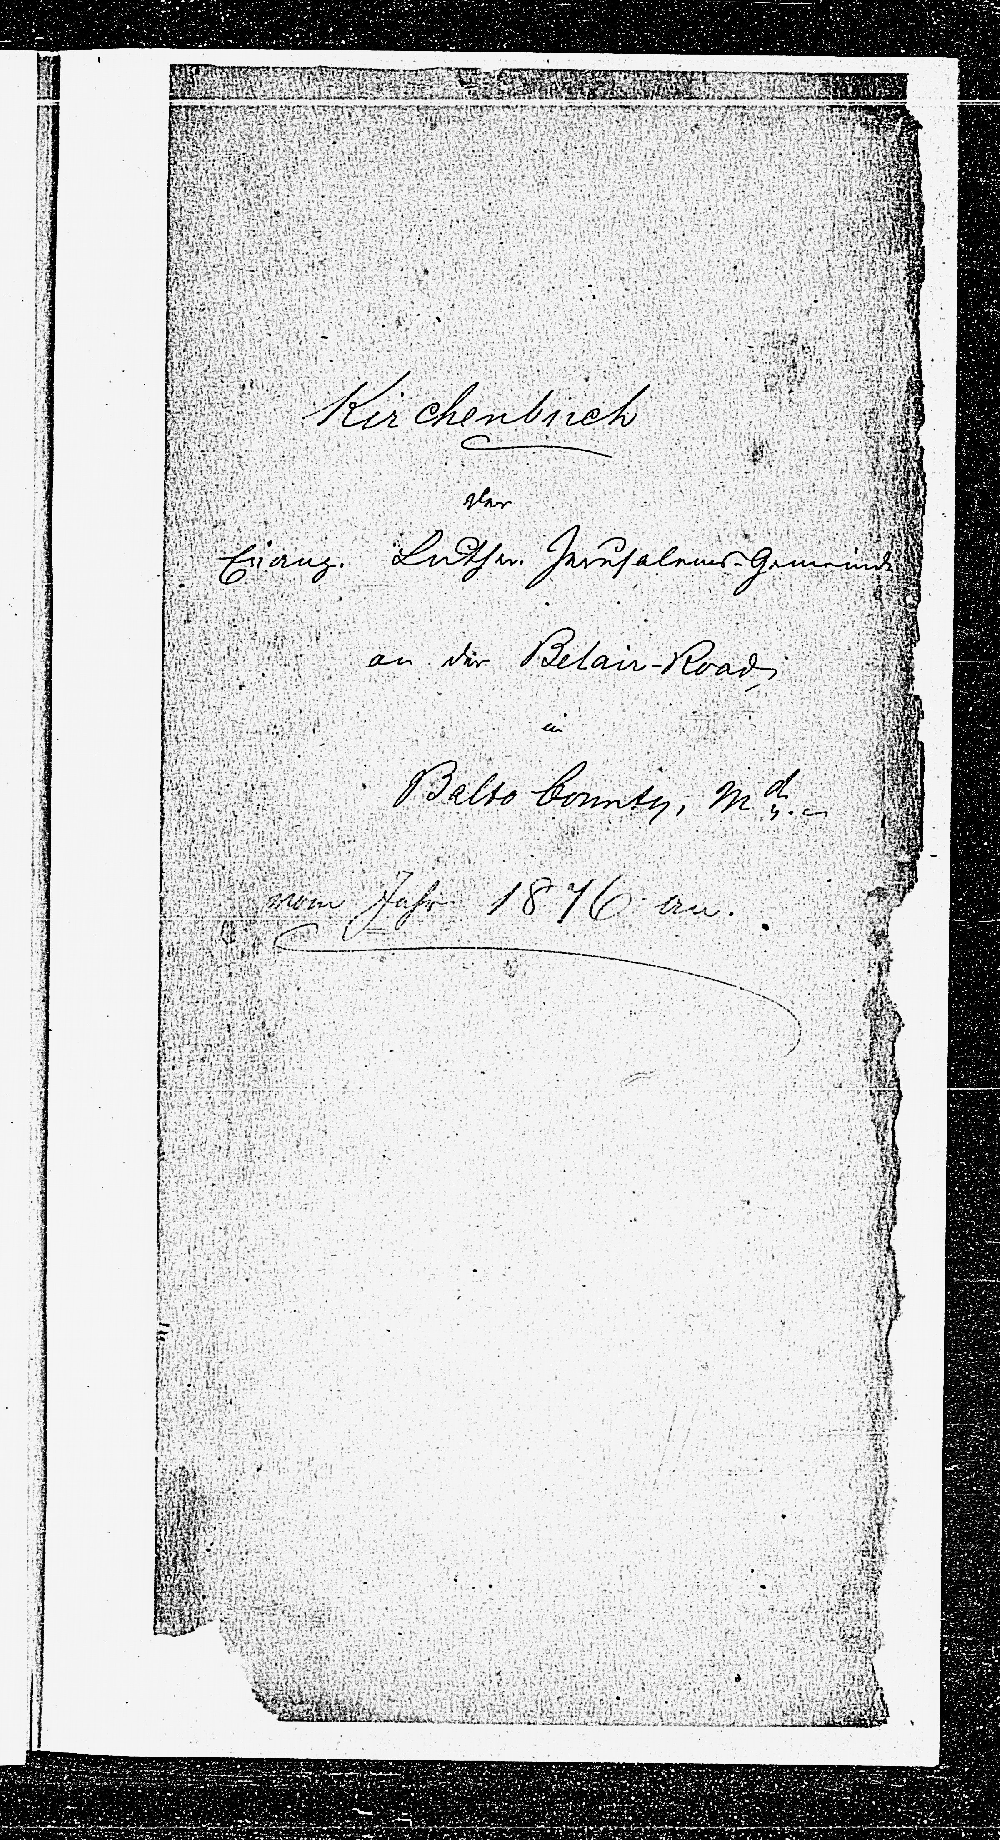 Kirchenbuch
der
Evang. Luther. Jerusalems-Gemeinde
an der Belair-Road,
in
Balto County, Md.
vom Jahr 1876 an.